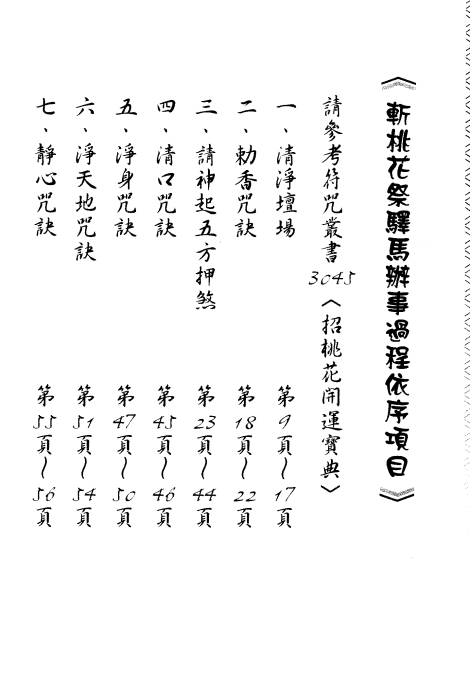 《斬桃花祭驛馬辦事過程依序項目》
請參考符咒叢書3045〈招桃花開運寶典〉
一、清淨壇場 第9頁~17頁
二、勅香咒訣 第18頁~22頁
三、請神起五方押煞 第23頁~44頁
四、清口咒訣 第45頁~46頁
五、淨身咒訣 第47頁~50頁
六、淨天地咒訣 第51頁~54頁
七、靜心咒訣 第55頁~56頁